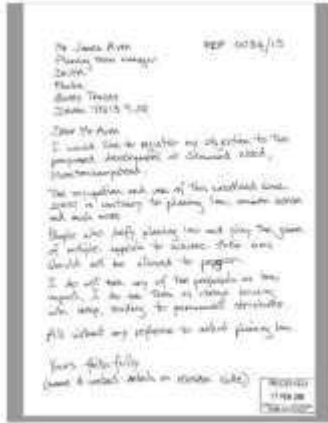 Mr James Aven
REF 0036/15
Planning Team Manager
DNPA
Parke
Bovey Tracey
Devon TQ13 9JQ
Dear Mr Aven
I would like to register my objection to the
proposed development at Steward Wood,
Moretonhampstead.
The occupation and use of this woodland since
2000 is contrary to planning law,
and much more.
People who defy planning law and play the game
of multiple appeals to achieve their aims
should not be allowed to
I do not see any of the proposals as low
impact, I do see them as
to permanent structures
All without any reference to planning law.
Yours faithfully
(name & contact details on reverse side)
RECEIVED
17 FEB